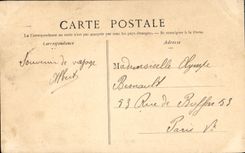 CARTE POSTALE
La Correspondance au recto n'est pas acceptée par tous les pays étrangers. - Se renseigner à la Poste.
Correspondance
Adresse
Souvenir de voyage
Albert
Mademoiselle Olympe
Besnault
53 Rue de Buffon 53
Paris Ve